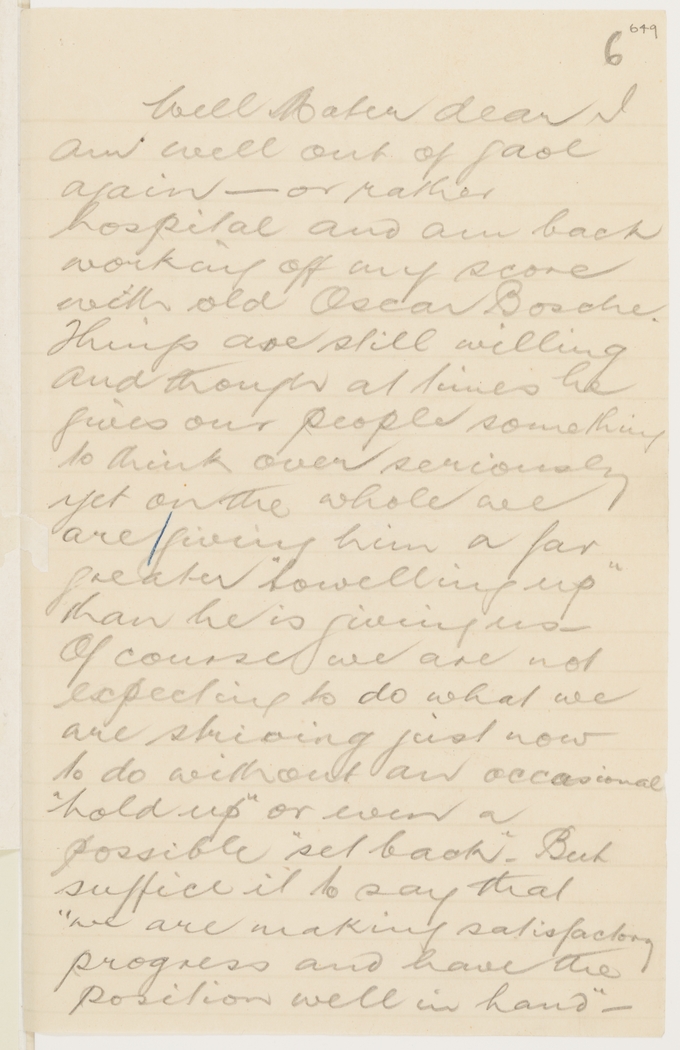 649
6
Well Mater dear I
am well out of gaol
again — or rather
hospital and am back
working off my score
with old Oscar Bosche.
Things are still willing
and though at times he
gives our people something
to think over seriously
yet on the whole we
are giving him a far
greater "towelling up"
than he is giving us —
Of course we are not
expecting to do what we
are striving just now
to do without an occasional
"hold up" or even a
possible "set back". But
suffice it to say that
"we are making satisfactory
progress and have the
position well in hand" —